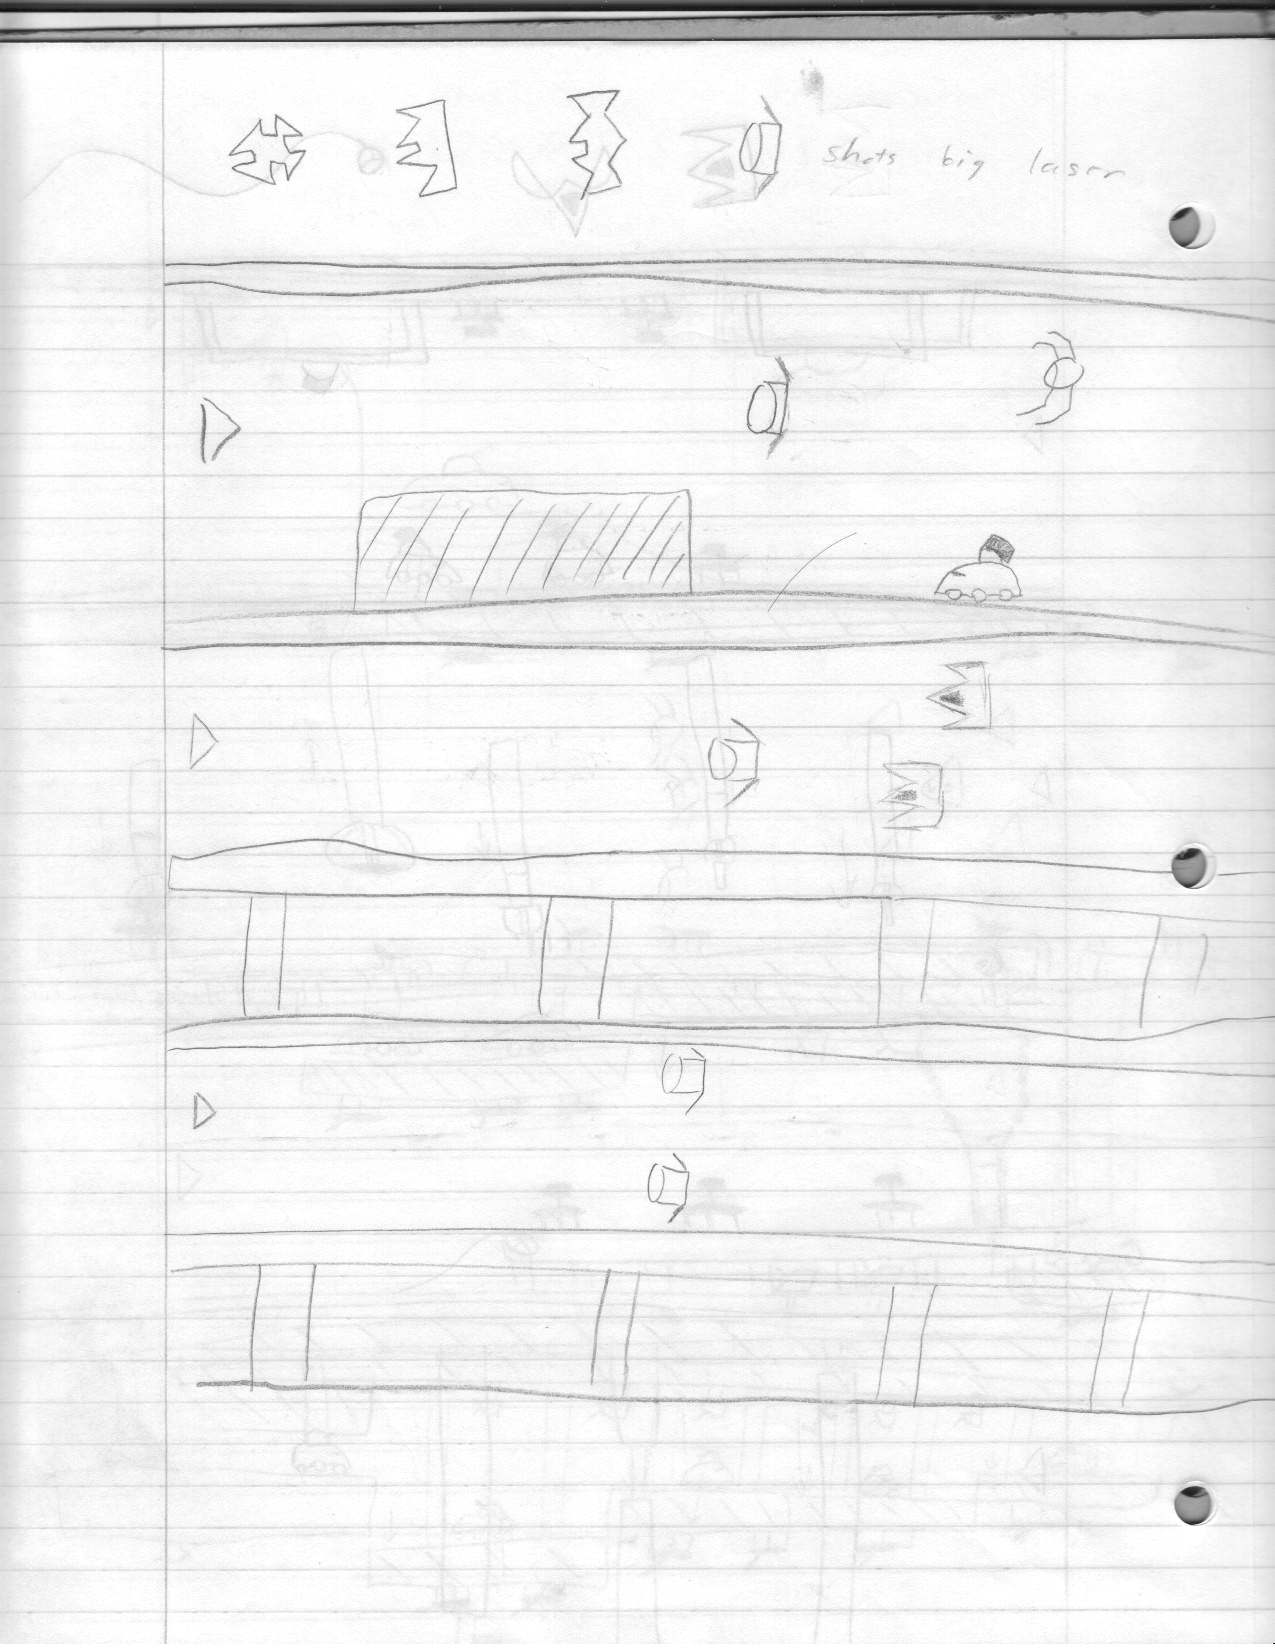 shots big laser